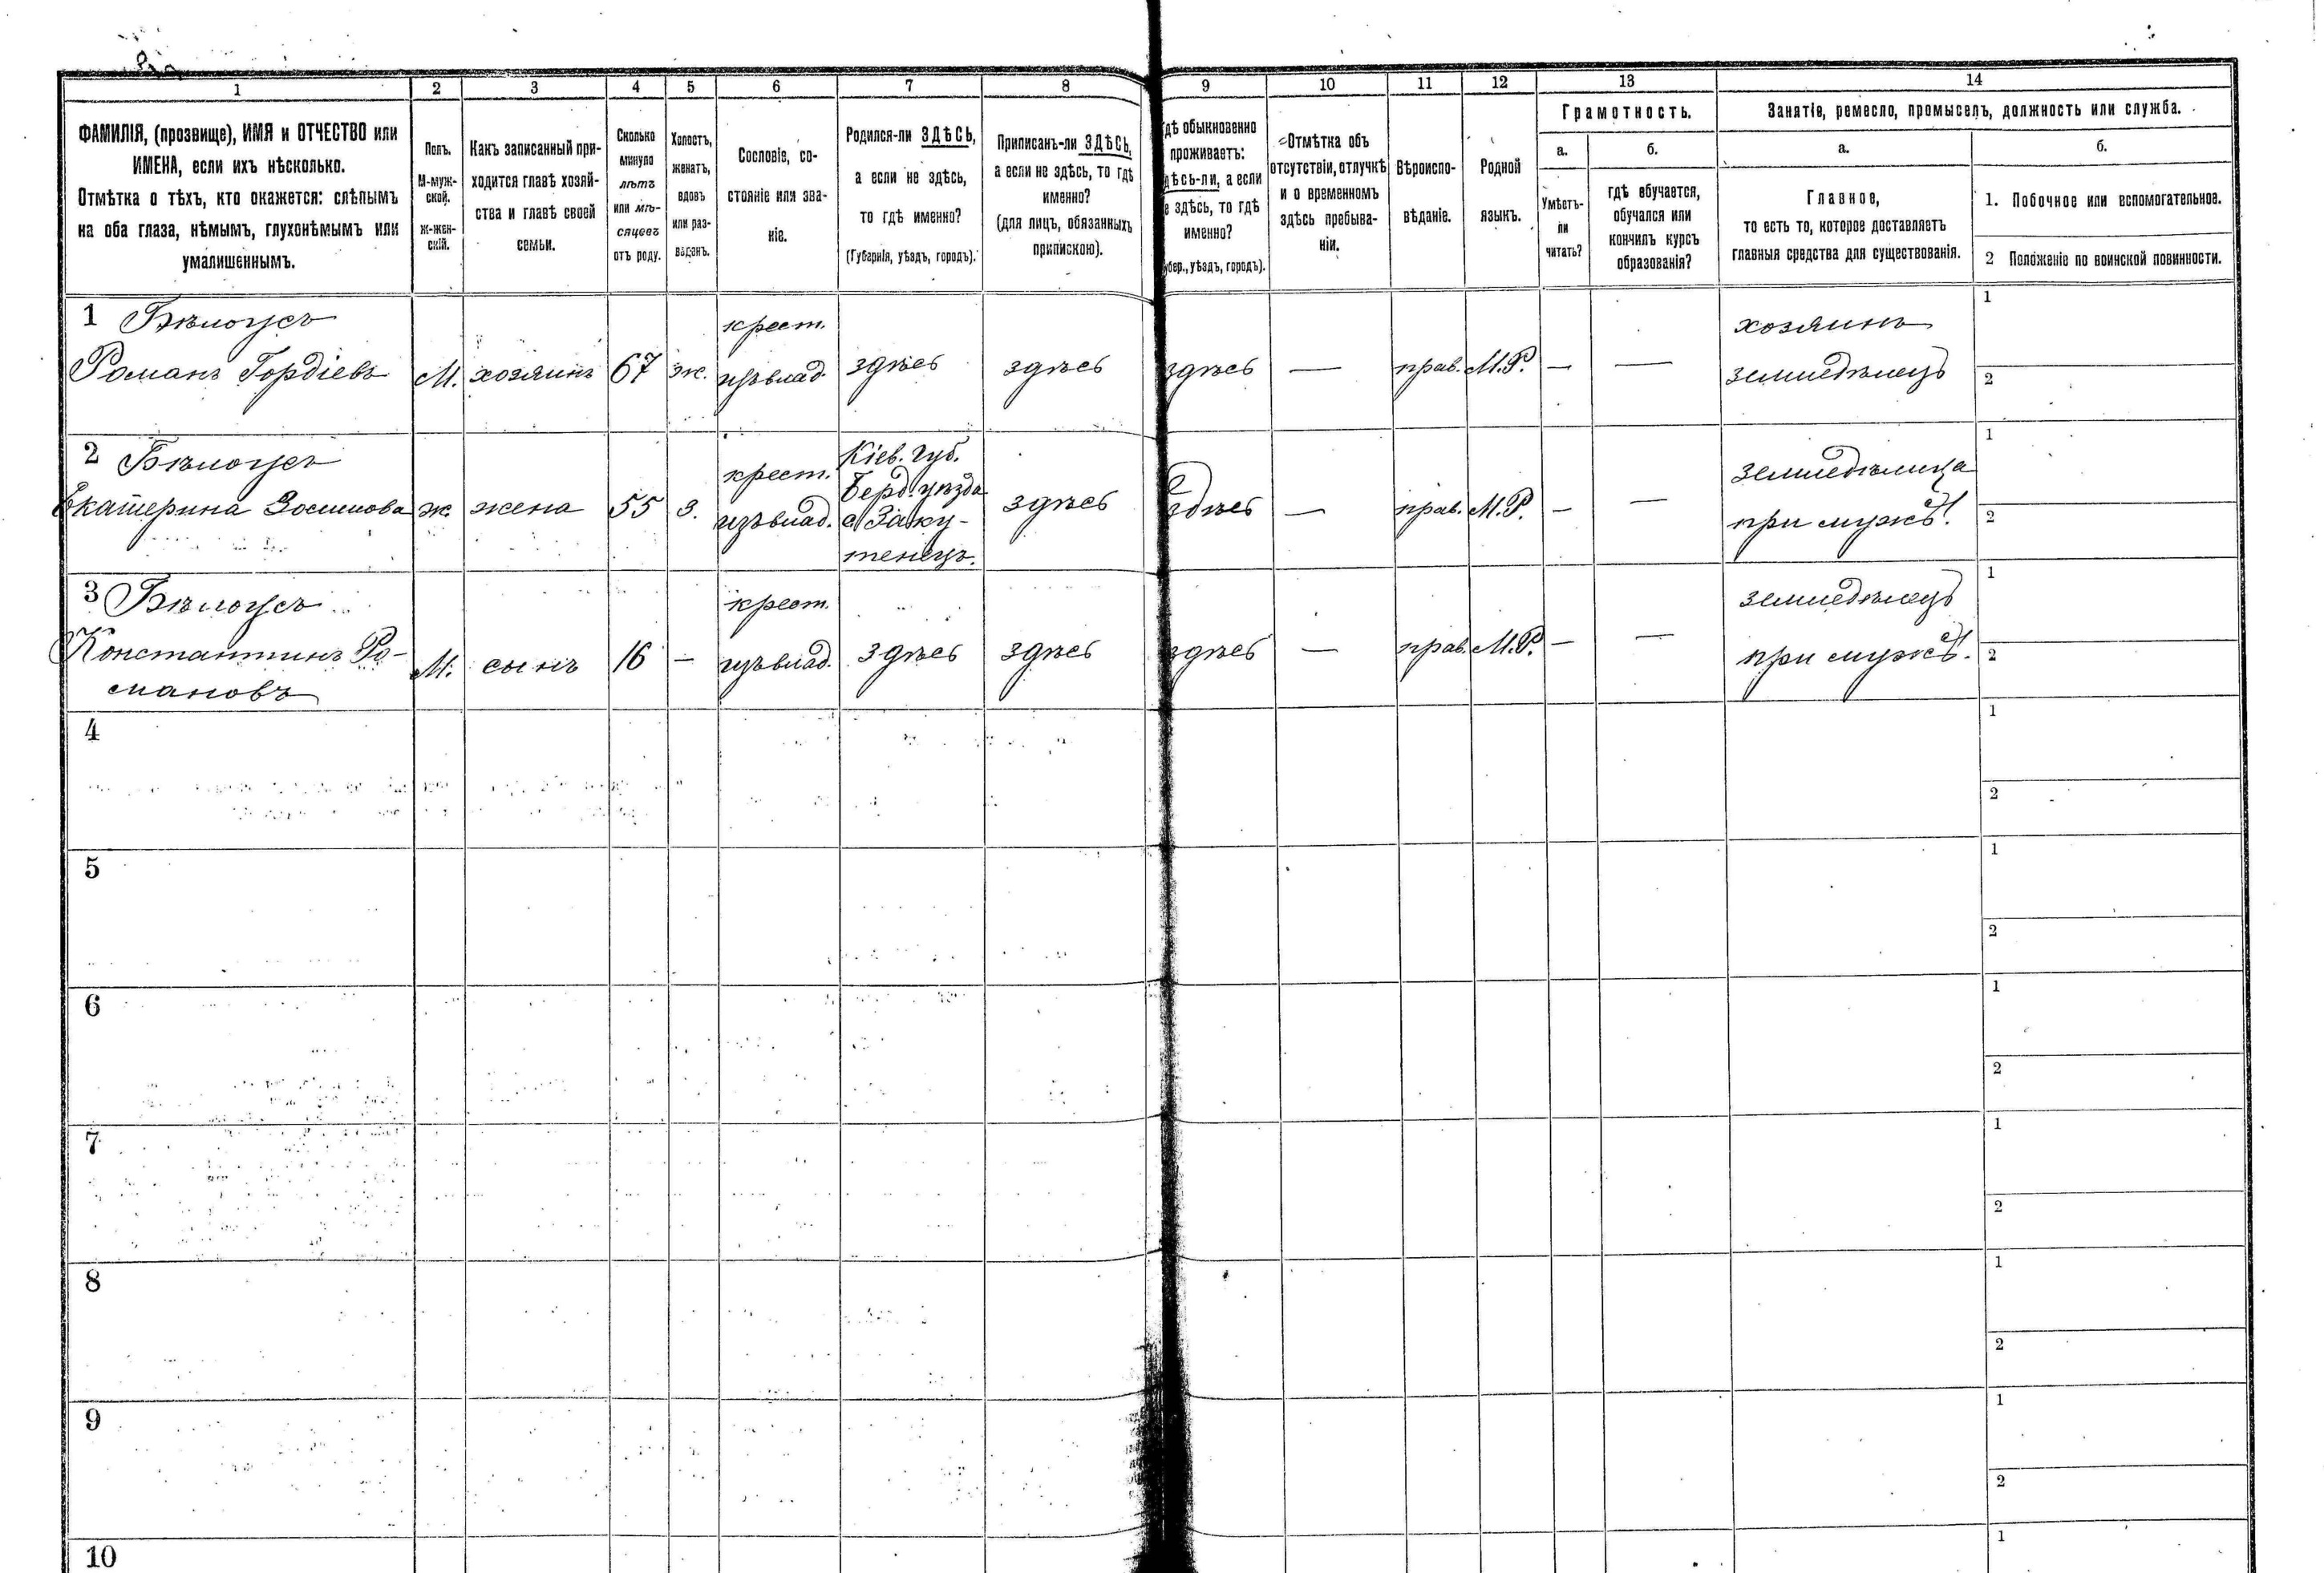 1 2 3 4 5 6 7 8 9 10 11 12 13 14
ФАМИЛІЯ, (прозвище), ИМЯ и ОТЧЕСТВО или
ИМЕНА, если ихъ нѣсколько.
Отмѣтка о тѣхъ, кто окажется: слѣпымъ
на оба глаза, нѣмымъ, глухонѣмымъ или
умалишеннымъ.
Полъ.
М-муж-
ской.
Ж-жен-
скій.
Какъ записанный при-
ходится главѣ хозяй-
ства и главѣ своей
семьи.
Сколько
минуло
лѣтъ
или мѣ-
сяцевъ
отъ роду.
Холостъ,
женатъ,
вдовъ
или раз-
веденъ.
Сословіе, со-
стояніе или зва-
ніе.
Родился-ли ЗДѢСЬ,
а если не здѣсь,
то гдѣ именно?
(Губернія, уѣздъ, городъ).
Приписанъ-ли ЗДѢСЬ,
а если не здѣсь, то гдѣ
именно?
(для лицъ, обязанныхъ
припискою).
дѣ обыкновенно
проживаетъ:
дѣсь-ли, а если
е здѣсь, то гдѣ
именно?
убер., уѣздъ, городъ).
Отмѣтка объ
отсутствіи, отлучкѣ
и о временномъ
здѣсь пребыва-
ніи.
Вѣроиспо-
вѣданіе.
Родной
языкъ.
Грамотность.
а.
Умѣетъ-
ли
читать?
б.
гдѣ обучается,
обучался или
кончилъ курсъ
образованія?
Занятіе, ремесло, промыселъ, должность или служба.
а.
Главное,
то есть то, которое доставляетъ
главныя средства для существованія.
б.
1. Побочное или вспомогательное.
2 Положеніе по воинской повинности.
1 Бѣлоусъ
Романъ Гордіевъ
М.
хозяинъ
67
ж.
крест.
изъ влад.
здѣсь
здѣсь
здѣсь
—
прав.
М.Р.
—
—
хозяинъ
земледѣлецъ
1
2
2 Бѣлоусъ
Екатерина Зосимова
ж.
жена
55
З.
крест.
изъ влад.
Кіев. губ.
Берд. уѣзда
с Заку-
тенецъ.
здѣсь
здѣсь
—
прав.
М.Р.
—
—
земледѣлица
при мужѣ.
1
2
3 Бѣлоусъ
Константинъ Ро-
мановъ
М.
сынъ
16
—
крест.
изъ влад.
здѣсь
здѣсь
здѣсь
—
прав.
М.Р.
—
—
земледѣлецъ
при мужѣ.
1
2
4
1
2
5
1
2
6
1
2
7
1
2
8
1
2
9
1
2
10
1